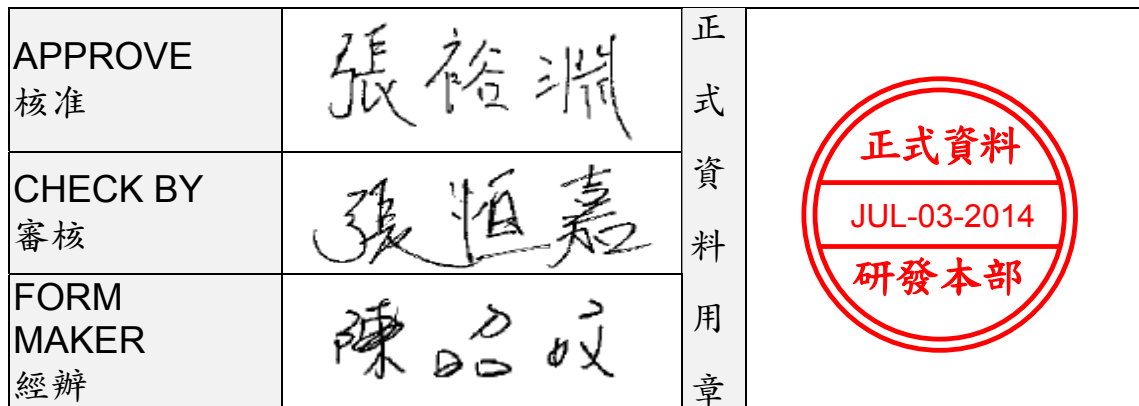 APPROVE
核准
張裕淵
CHECK BY
審核
張恒嘉
FORM
MAKER
經辦
陳召旼
正式資料用章
正式資料
JUL-03-2014
研發本部